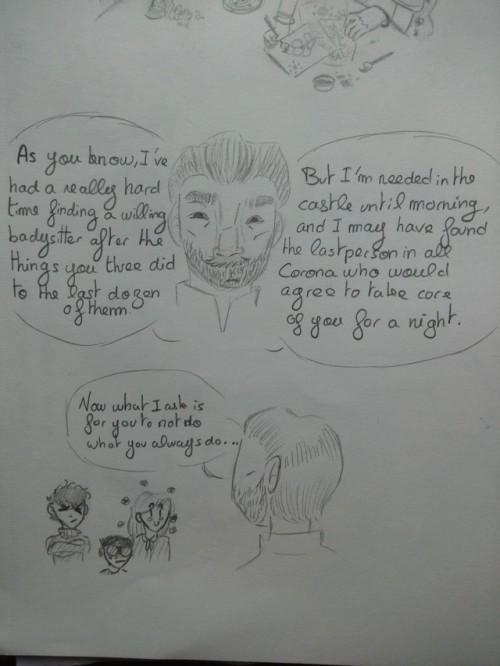 As you know, I've
had a really hard
time finding a willing
badysitter after the
things you three did
to the last dozen
of them.
But I'm needed in the
castle until morning,
and I may have found
the last person in all
Corona who would
agree to take care
of you for a night.
Now what I ask is
for you to not do
what you always do...